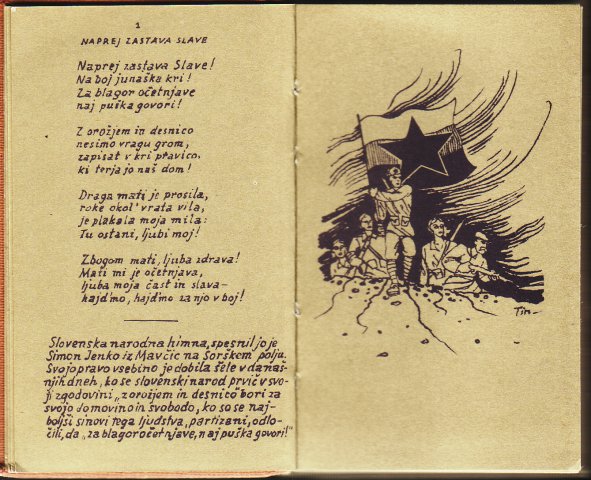 1
NAPREJ ZASTAVA SLAVE
Naprej zastava Slave!
Na boj junaška kri!
Za blagor očetnjave
naj puška govori!
Z orožjem in desnico
nesimo vragu grom,
zapisat v kri pravico,
ki terja jo naš dom!
Draga mati je prosila,
roke okol' vrata vila,
je plakala moja mila:
Tu ostani, ljubi moj!
Zbogom mati, ljuba zdrava!
Mati mi je očetnjava,
ljuba moja čast in slava-
hajdmo, hajdmo za njo v boj!
Slovenska narodna himna, spesnil jo je
Simon Jenko iz Mavčič na Sorškem polju.
Svojo pravo vsebino je dobila šele v današ-
njih dneh, ko se slovenski narod prvič v svo-
ji zgodovini „z orožjem in desnico" bori za
svojo domovino in svobodo, ko so se naj-
boljši sinovi tega ljudstva, partizani, odlo-
čili, da „za blagor očetnjave, naj puška govori!"
Tin-